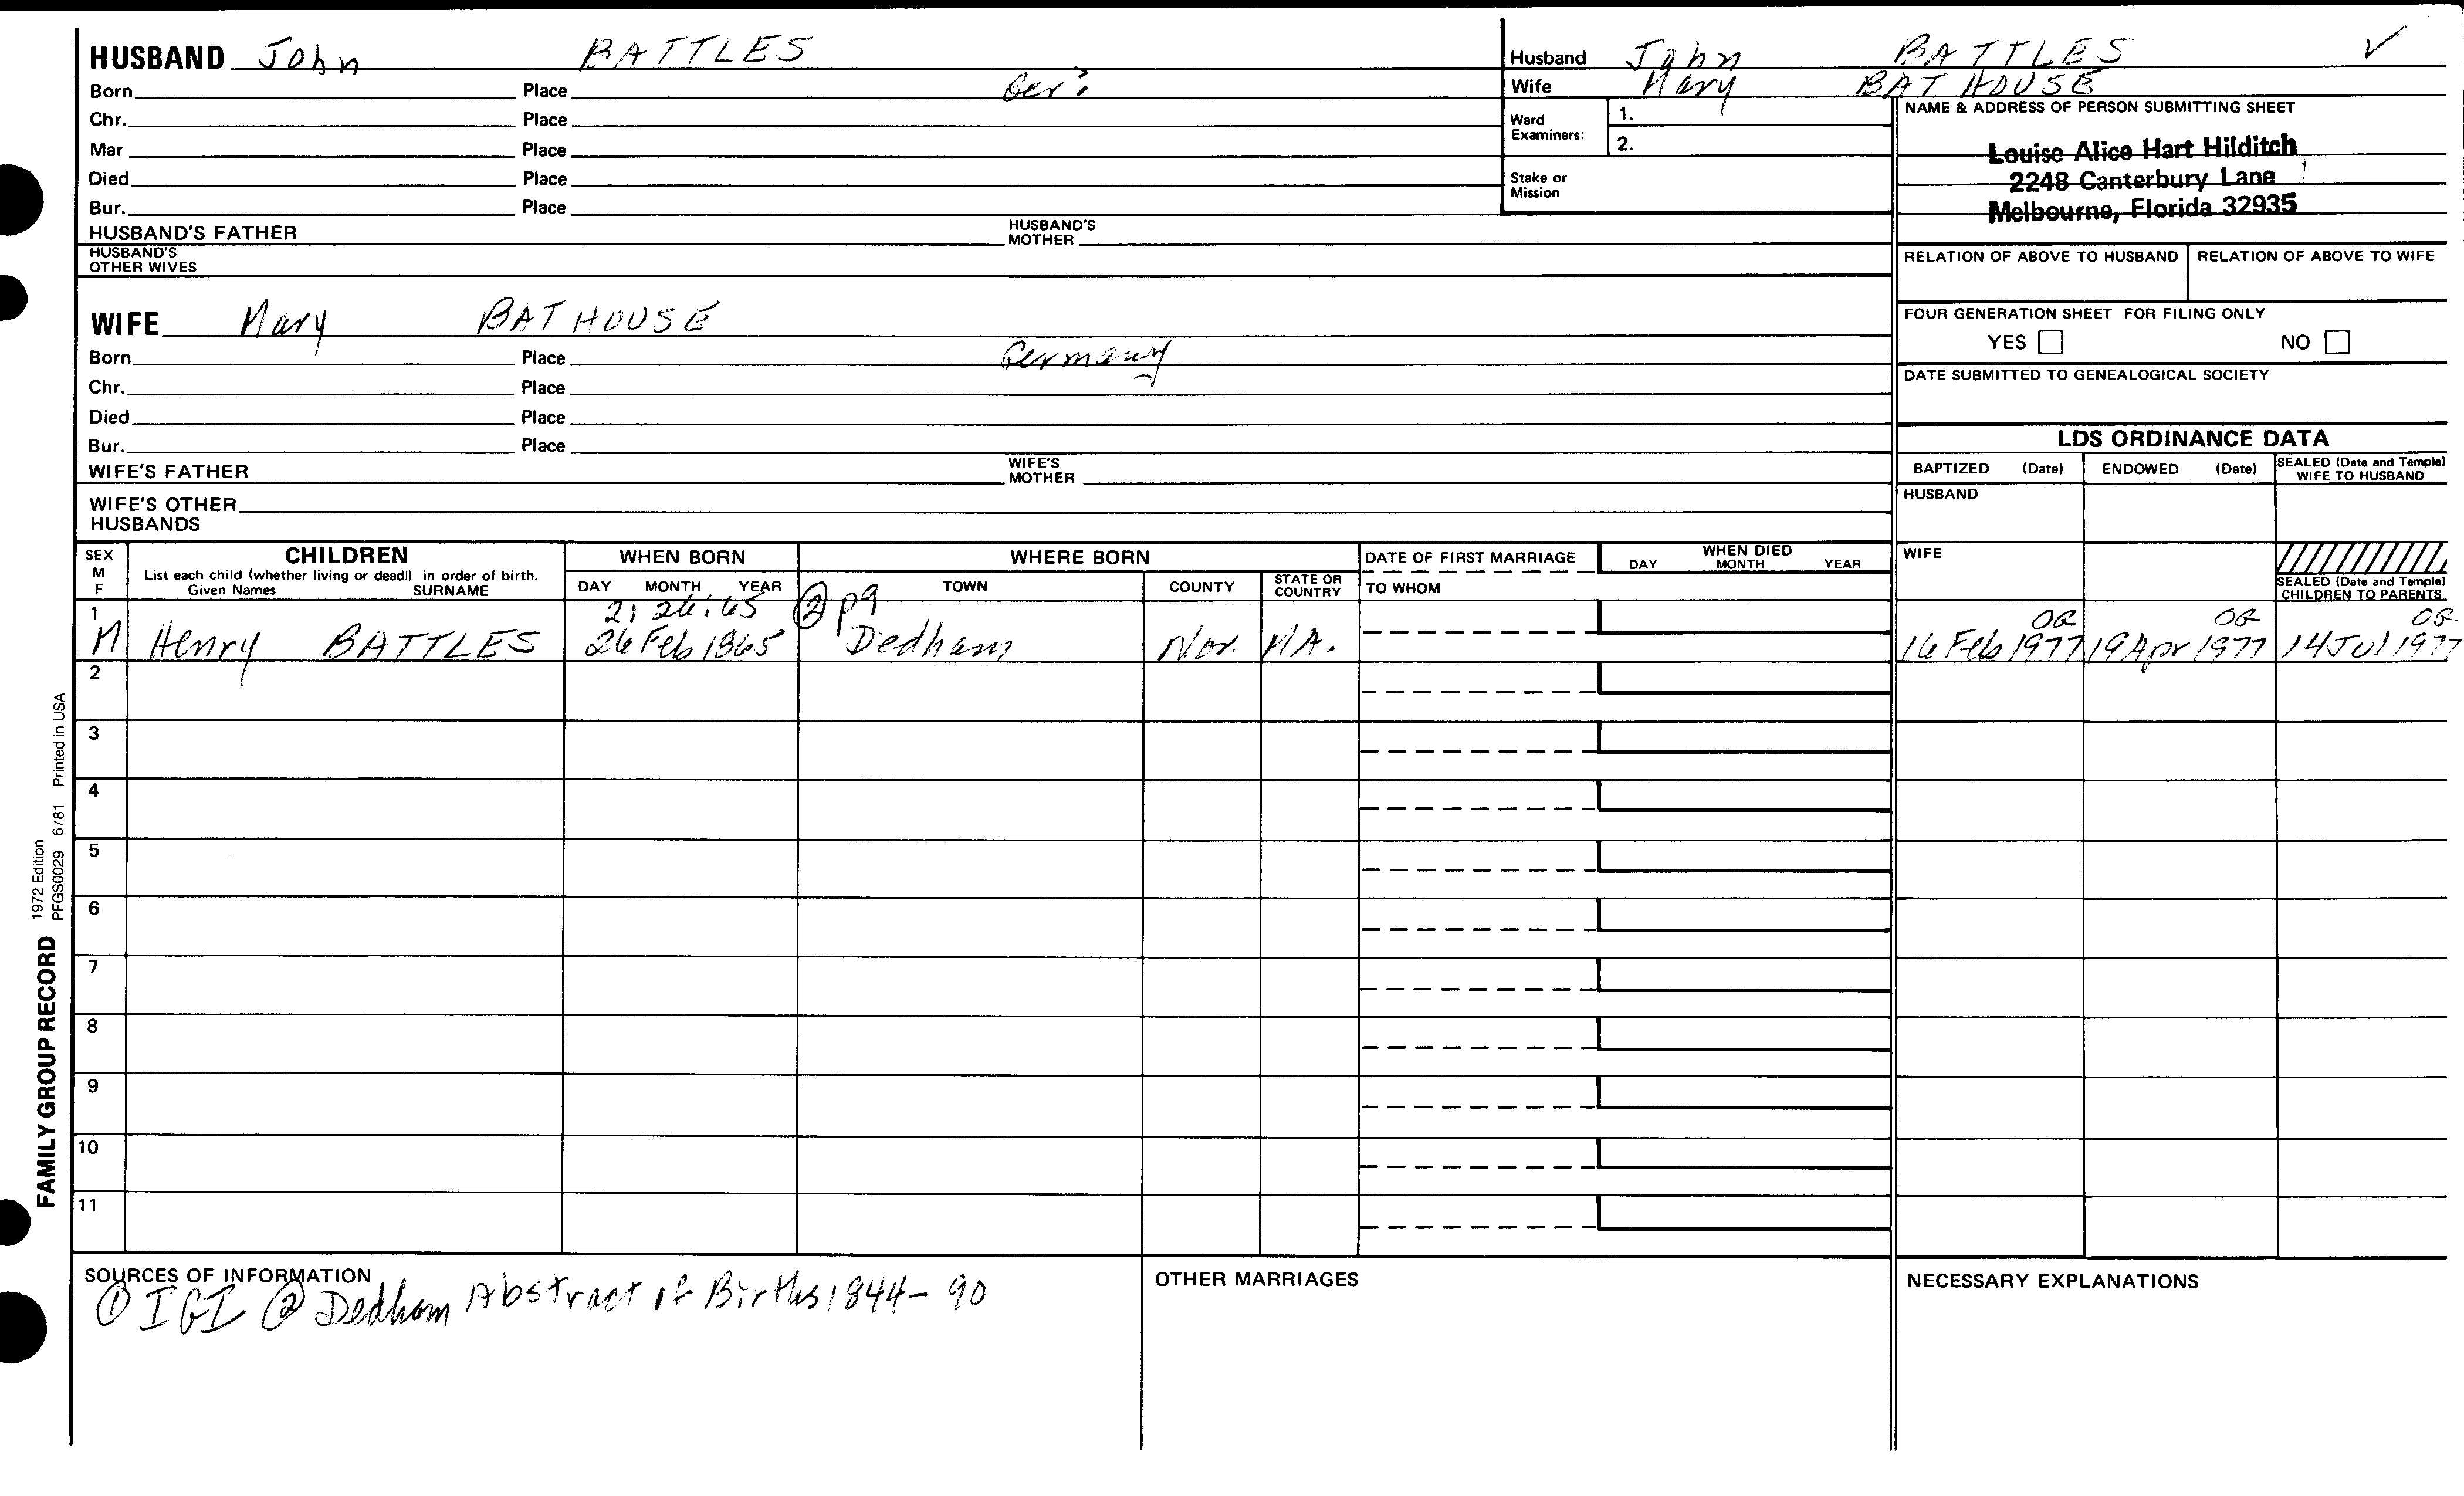 HUSBAND John BATTLES
Born Place Ger?
Chr. Place
Mar Place
Died Place
Bur. Place
HUSBAND'S FATHER HUSBAND'S MOTHER
HUSBAND'S OTHER WIVES
WIFE Mary BATHOUSE
Born Place Germany
Chr. Place
Died Place
Bur. Place
WIFE'S FATHER WIFE'S MOTHER
WIFE'S OTHER HUSBANDS
Husband John BATTLES ✓
Wife Mary BATHOUSE
Ward Examiners: 1.
2.
Stake or Mission
NAME & ADDRESS OF PERSON SUBMITTING SHEET
Louise Alice Hart Hilditch
2248 Canterbury Lane
Melbourne, Florida 32935
RELATION OF ABOVE TO HUSBAND RELATION OF ABOVE TO WIFE
FOUR GENERATION SHEET FOR FILING ONLY
YES NO
DATE SUBMITTED TO GENEALOGICAL SOCIETY
LDS ORDINANCE DATA
BAPTIZED (Date) ENDOWED (Date) SEALED (Date and Temple) WIFE TO HUSBAND
HUSBAND
WIFE
SEALED (Date and Temple) CHILDREN TO PARENTS
SEX M F
CHILDREN
List each child (whether living or dead) in order of birth.
Given Names SURNAME
WHEN BORN
DAY MONTH YEAR
WHERE BORN
TOWN COUNTY STATE OR COUNTRY
DATE OF FIRST MARRIAGE
TO WHOM
WHEN DIED
DAY MONTH YEAR
1 2; 26; 65 ② p9 OG OG OG
M Henry BATTLES 26 Feb 1865 Dedham Nor. MA. 16 Feb 1977 19 Apr 1977 14 Jul 1977
2
3
4
5
6
7
8
9
10
11
SOURCES OF INFORMATION
① IGI ② Dedham Abstract of Births 1844-90
OTHER MARRIAGES
NECESSARY EXPLANATIONS
FAMILY GROUP RECORD 1972 Edition
PFGS0029 6/81 Printed in USA